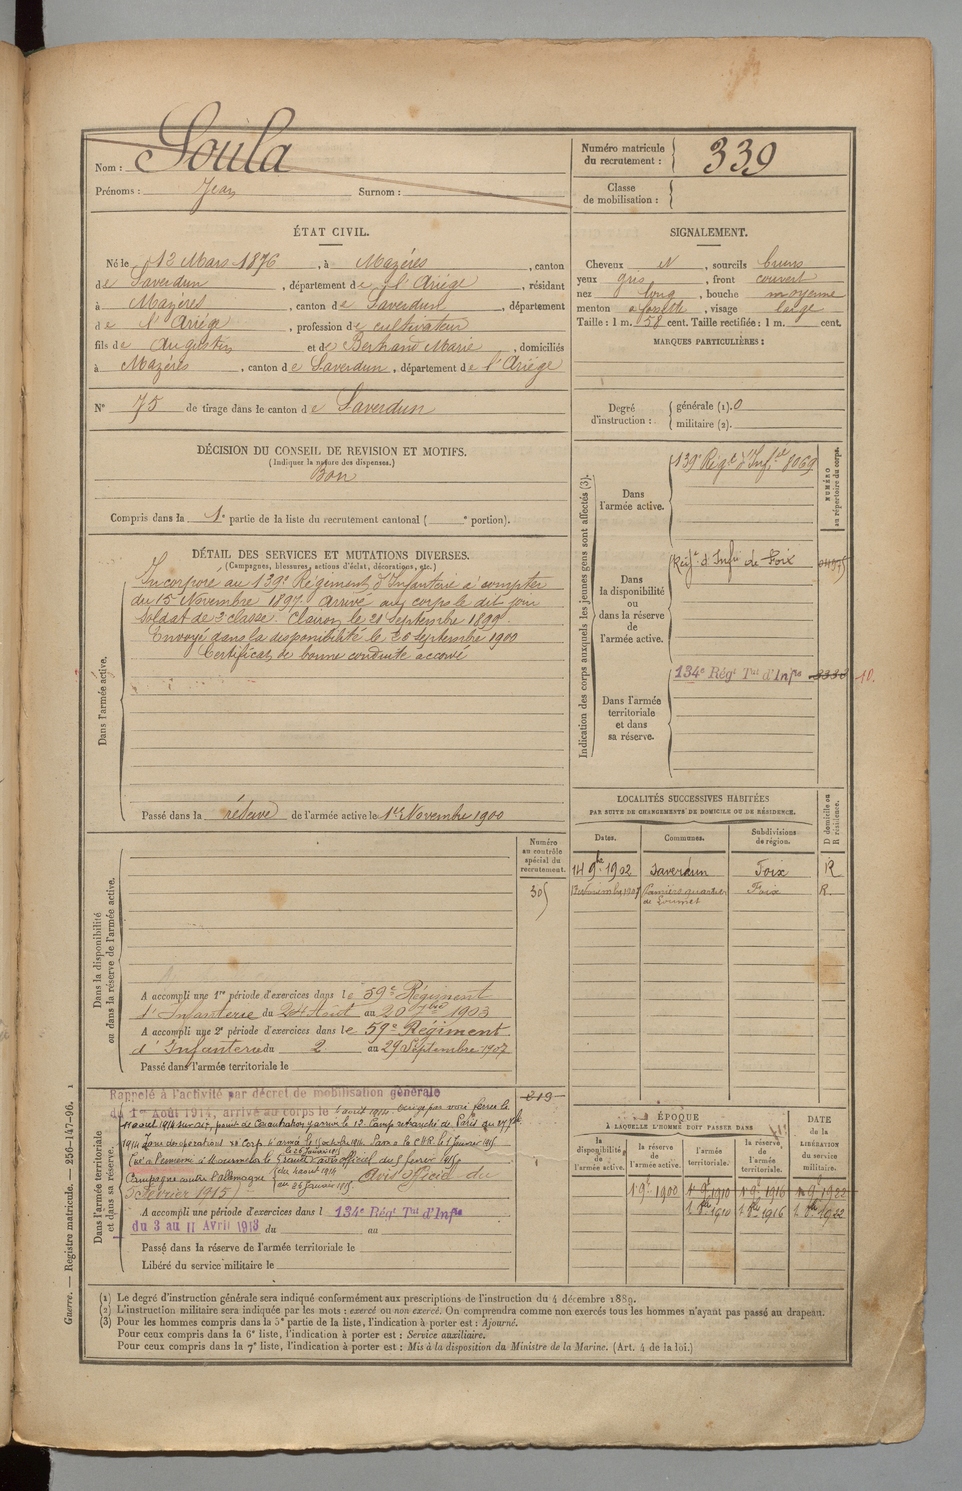 Nom : Soula
Prénoms : Jean Surnom :
Numéro matricule du recrutement : 339
Classe de mobilisation :
ÉTAT CIVIL.
Né le 12 Mars 1876, à Mazères, canton
de Saverdun, département de l'Ariège, résidant
à Mazères, canton de Saverdun, département
de l'Ariège, profession de cultivateur
fils de Augustin et de Bertrand Marie, domiciliés
à Mazères, canton de Saverdun, département de l'Ariège
N° 75 de tirage dans le canton de Saverdun
SIGNALEMENT.
Cheveux N, sourcils bruns
yeux gris, front couvert
nez long, bouche moyenne
menton à fossette, visage large
Taille : 1 m. 58 cent. Taille rectifiée : 1 m. cent.
MARQUES PARTICULIÈRES :
Degré d'instruction : générale (1). 0
militaire (2).
DÉCISION DU CONSEIL DE REVISION ET MOTIFS.
(Indiquer la nature des dispenses.)
Bon
Compris dans la 1e partie de la liste du recrutement cantonal ( e portion).
DÉTAIL DES SERVICES ET MUTATIONS DIVERSES.
(Campagnes, blessures, actions d'éclat, décorations, etc.)
Dans l'armée active.
Incorporé au 139e Régiment d'Infanterie à compter
du 15 Novembre 1897. Arrivé au corps le dit jour
soldat de 2e classe. Clairon le 21 Septembre 1899.
Envoyé dans la disponibilité le 20 Septembre 1900
Certificat de bonne conduite accordé
Passé dans la réserve de l'armée active le 1er Novembre 1900
Indication des corps auxquels les jeunes gens sont affectés (3).
NUMÉRO au répertoire du corps.
Dans l'armée active.
139e Régt d'Infie 8069
Dans la disponibilité ou dans la réserve de l'armée active.
Régt d'Infie de Foix
Dans l'armée territoriale et dans sa réserve.
134e Régt Tal d'Infie
10.
LOCALITÉS SUCCESSIVES HABITÉES
PAR SUITE DE CHANGEMENTS DE DOMICILE OU DE RÉSIDENCE.
D domicile ou R résidence.
Dates. Communes. Subdivisions de région.
14 9bre 1902 Saverdun Foix R
1907 Pamiers quartier de Foix R.
Dans la disponibilité ou dans la réserve de l'armée active.
Numéro au contrôle spécial du recrutement.
305
A accompli une 1re période d'exercices dans le 59e Régiment
d'Infanterie du 24 Août au 20 7bre 1903
A accompli une 2e période d'exercices dans le 59e Régiment
d'Infanterie du 2 au 29 Septembre 1907
Passé dans l'armée territoriale le
Dans l'armée territoriale et dans sa réserve.
Rappelé à l'activité par décret de mobilisation générale
du 1er Août 1914, arrivé au corps le
Campagne contre l'Allemagne du 4 août 1914 au 26 Janvier 1915. Avis officiel du
5 février 1915
A accompli une période d'exercices dans l 134e Régt Tal d'Infie
du 3 au 11 Avril 1913 du au
Passé dans la réserve de l'armée territoriale le
Libéré du service militaire le
ÉPOQUE
À LAQUELLE L'HOMME DOIT PASSER DANS
la disponibilité de l'armée active. la réserve de l'armée active. l'armée territoriale. la réserve de l'armée territoriale.
DATE de la LIBÉRATION du service militaire.
1er 9bre 1900 1er 9bre 1910 1er 9bre 1916 1er 9bre 1922
1 8bre 1910 1 8bre 1916 1 8bre 1922
(1) Le degré d'instruction générale sera indiqué conformément aux prescriptions de l'instruction du 4 décembre 1889.
(2) L'instruction militaire sera indiquée par les mots : exercé ou non exercé. On comprendra comme non exercés tous les hommes n'ayant pas passé au drapeau.
(3) Pour les hommes compris dans la 5e partie de la liste, l'indication à porter est : Ajourné.
Pour ceux compris dans la 6e liste, l'indication à porter est : Service auxiliaire.
Pour ceux compris dans la 7e liste, l'indication à porter est : Mis à la disposition du Ministre de la Marine. (Art. 4 de la loi.)
Guerre. — Registre matricule. — 256-147-96. 1